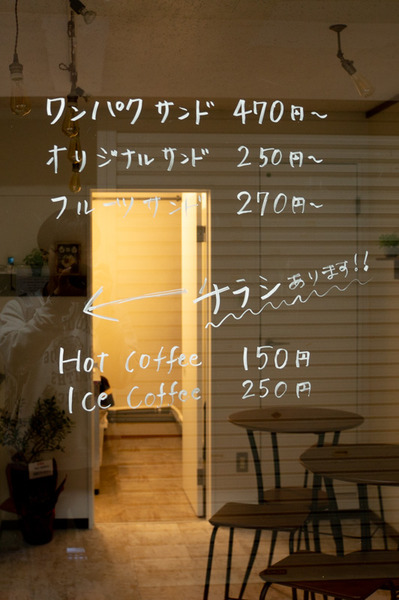 ワンパクサンド 470円～
オリジナルサンド 250円～
フルーツサンド 270円～
← チラシあります!!
Hot coffee 150円
Ice Coffee 250円